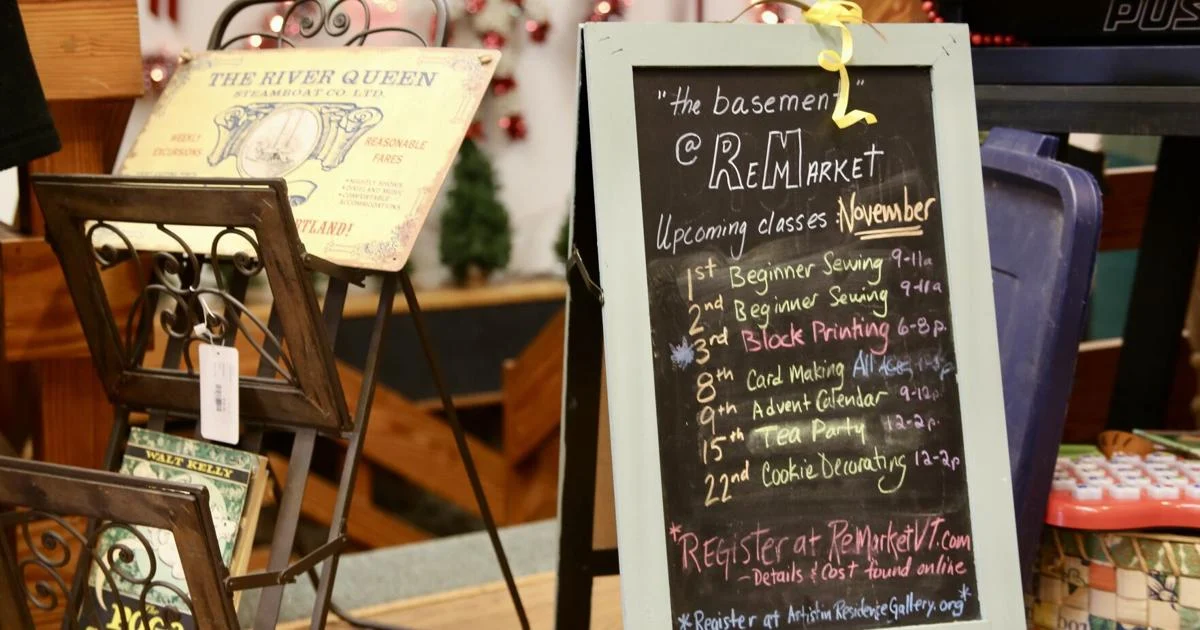 THE RIVER QUEEN
STEAMBOAT CO. LTD.
WEEKLY
EXCURSIONS
REASONABLE
FARES
•NIGHTLY SHOWS
•DIXIELAND MUSIC
•COMFORTABLE
ACCOMMODATIONS
RTLAND!
WALT KELLY
POGO
PUS
"the basement"
@ REMARKET
Upcoming classes: November
1st Beginner Sewing 9-11a
2nd Beginner Sewing 9-11a
*3rd Block Printing 6-8p.
8th Card Making All Ages
9th Advent Calendar 9-12p.
15th Tea Party 12-2p.
22nd Cookie Decorating 12-2p
*REGISTER at ReMarketVT.com
-Details & Cost found online
*Register at Artistin ResidenceGallery.org*